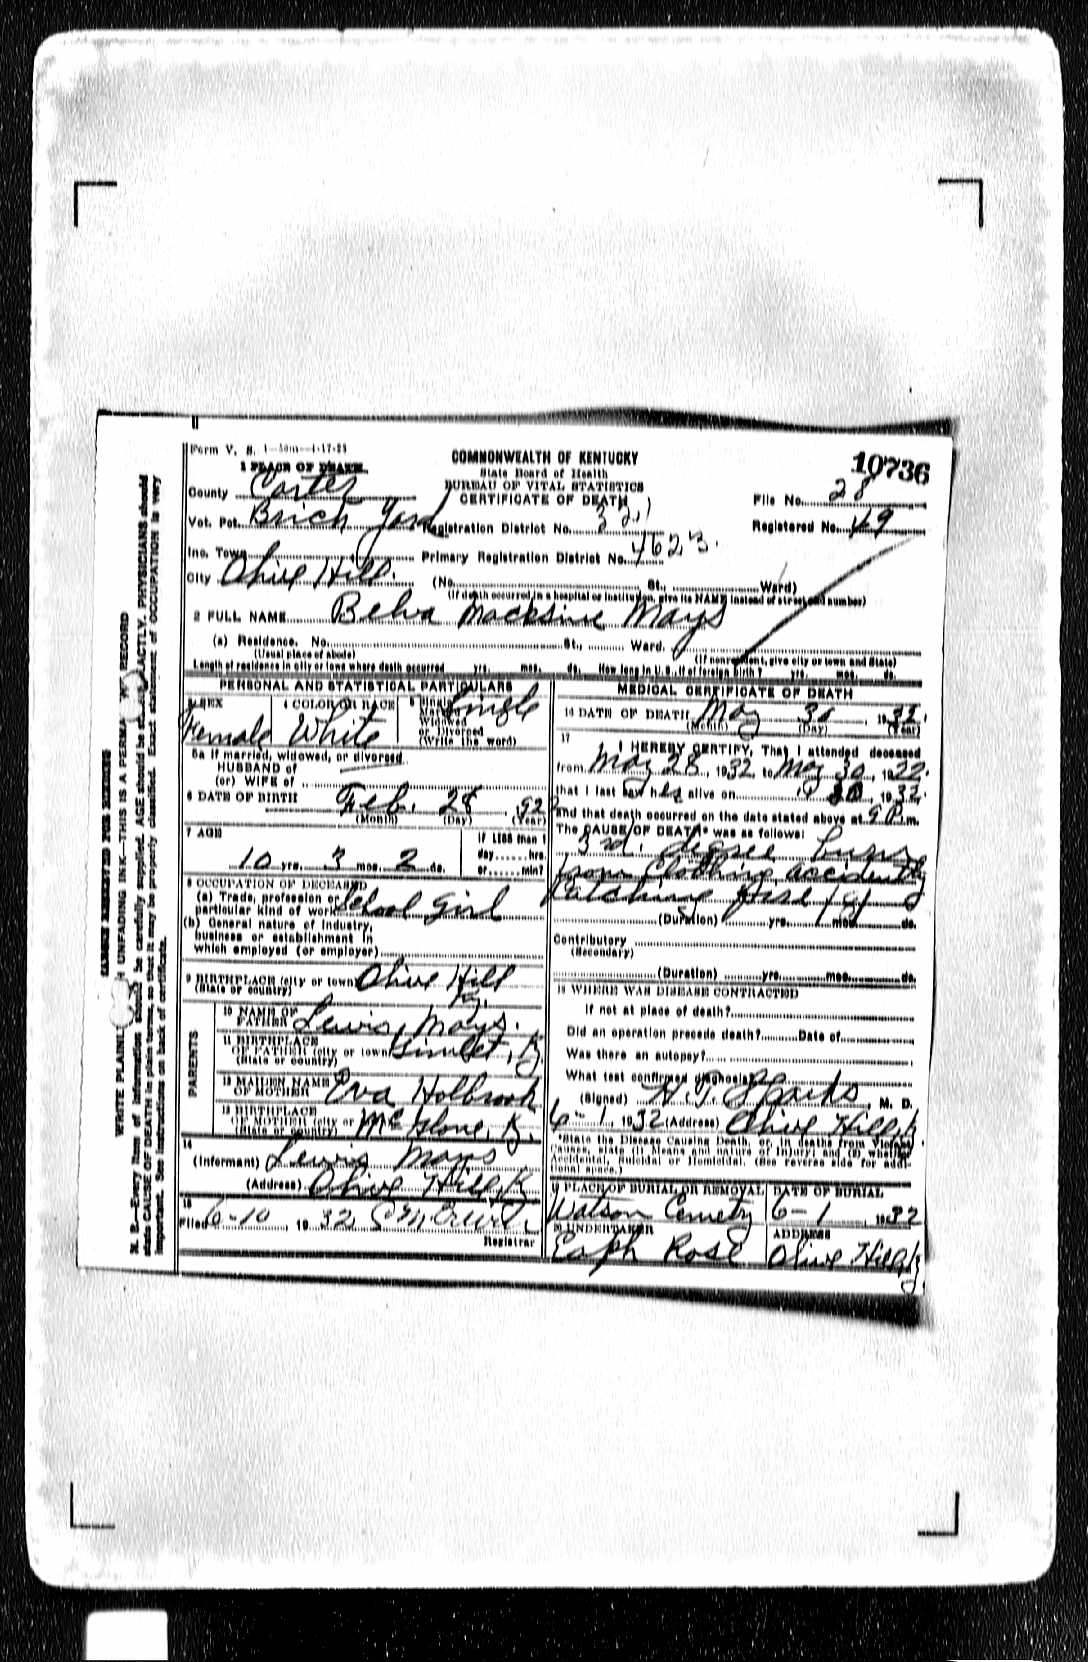 Form V. S. 1—50m—4-17-23
COMMONWEALTH OF KENTUCKY
State Board of Health
BUREAU OF VITAL STATISTICS
CERTIFICATE OF DEATH
10736
1 PLACE OF DEATH
County Carter
File No. 28
Vot. Pct. Brick Yard
Registration District No. 321
Registered No. 49
Inc. Town
Primary Registration District No. 4623.
City Olive Hill. (No. St., Ward)
(If death occurred in a hospital or institution, give its NAME instead of street and number)
2 FULL NAME Belva Macksine Mays
(a) Residence. No. St., Ward.
(Usual place of abode) (If nonresident, give city or town and State)
Length of residence in city or town where death occurred yrs. mos. ds. How long in U. S., if of foreign birth? yrs. mos. ds.
PERSONAL AND STATISTICAL PARTICULARS
3 SEX Female
4 COLOR OR RACE White
5 Single
Married
Widowed
or Divorced
(Write the word) Single
5a If married, widowed, or divorced
HUSBAND of
(or) WIFE of
6 DATE OF BIRTH Feb. 28, 1922
(Month) (Day) (Year)
7 AGE
If LESS than 1
day......hrs.
or......min?
10 yrs. 3 mos. 2 ds.
8 OCCUPATION OF DECEASED
(a) Trade, profession or
particular kind of work School Girl
(b) General nature of industry,
business or establishment in
which employed (or employer)
9 BIRTHPLACE (city or town) Olive Hill
(State or country) Ky.
PARENTS
10 NAME OF
FATHER Lewis Mays.
11 BIRTHPLACE
OF FATHER (city or town) Gimlet, Ky
(State or country)
12 MAIDEN NAME
OF MOTHER Eva Holbrook
13 BIRTHPLACE
OF MOTHER (city or
(State or country) McGlone, Ky.
14
(Informant) Lewis Mays
(Address) Olive Hill, K
15
Filed 6-10, 1932
Registrar
MEDICAL CERTIFICATE OF DEATH
16 DATE OF DEATH May 30, 1932.
(Month) (Day) (Year)
17
I HEREBY CERTIFY, That I attended deceased
from May 28, 1932 to May 30, 1922.
that I last saw her alive on 30, 1932.
and that death occurred on the date stated above at 9 P.m.
The CAUSE OF DEATH* was as follows:
3rd. degree burns
from Clothing accidently
Catching fire
(Duration) yrs. mos. ds.
Contributory
(Secondary)
(Duration) yrs. mos. ds.
18 WHERE WAS DISEASE CONTRACTED
If not at place of death?
Did an operation precede death? Date of
Was there an autopsy?
What test confirmed diagnosis?
(Signed) H. T. Sparks, M. D.
6-1, 1932 (Address) Olive Hill, K
*State the Disease Causing Death, or, in deaths from Violent
Causes, state (1) Means and nature of Injury; and (2) whether
Accidental, Suicidal or Homicidal. (See reverse side for addi-
tional space.)
19 PLACE OF BURIAL OR REMOVAL Watson Cemetry
DATE OF BURIAL 6-1, 1932
20 UNDERTAKER Eaph Rose
ADDRESS Olive Hill, Ky.
MARGIN RESERVED FOR BINDING
WRITE PLAINLY UNFADING INK—THIS IS A PERMANENT RECORD
N. B.—Every item of information should be carefully supplied. AGE should be stated EXACTLY. PHYSICIANS should
state CAUSE OF DEATH in plain terms, so that it may be properly classified. Exact statement of OCCUPATION is very
important. See instructions on back of certificate.